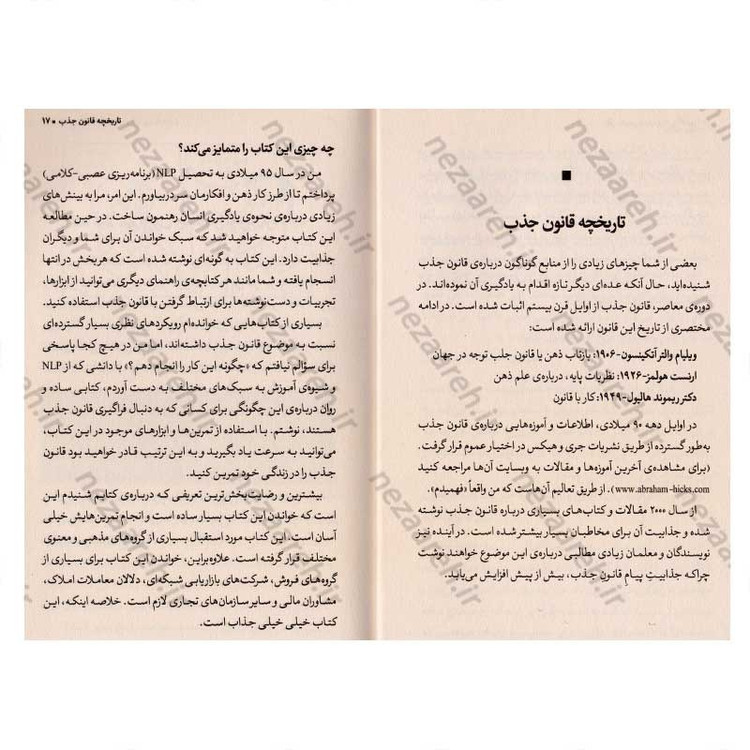 تاریخچه قانون جذب
بعضی از شما چیزهای زیادی را از منابع گوناگون درباره‌ی قانون جذب
شنیده‌اید، حال آنکه عده‌ای دیگر تازه اقدام به یادگیری آن نموده‌اند. در
دوره‌ی معاصر، قانون جذب از اوایل قرن بیستم اثبات شده است. در ادامه
مختصری از تاریخ این قانون ارائه شده است:
ویلیام والتر آتکینسون-۱۹۰۶: بازتاب ذهن یا قانون جلب توجه در جهان
ارنست هولمز-۱۹۲۶: نظریات پایه، درباره‌ی علم ذهن
دکتر ریموند هالیول-۱۹۴۹: کار با قانون
در اوایل دهه ۹۰ میلادی، اطلاعات و آموزه‌هایی درباره‌ی قانون جذب
به‌طور گسترده از طریق نشریات جری و هیکس در اختیار عموم قرار گرفت.
(برای مشاهده‌ی آخرین آموزه‌ها و مقالات به وبسایت آن‌ها مراجعه کنید
www.abraham-hicks.com). از طریق تعالیم آن‌هاست که من واقعاً «فهمیدم».
از سال ۲۰۰۰ مقالات و کتاب‌های بسیاری درباره قانون جذب نوشته
شده و جذابیت آن برای مخاطبان بسیار بیشتر شده است. در آینده نیز
نویسندگان و معلمان زیادی مطالبی درباره‌ی این موضوع خواهند نوشت
چراکه جذابیتِ پیامِ قانون جذب، بیش از پیش افزایش می‌یابد.
تاریخچه قانون جذب ● ۱۷
چه چیزی این کتاب را متمایز می‌کند؟
من در سال ۹۵ میلادی به تحصیل NLP (برنامه‌ریزی عصبی-کلامی)
پرداختم تا از طرز کار ذهن و افکارمان سر دربیاورم. این امر، مرا به بینش‌های
زیادی درباره‌ی نحوه‌ی یادگیری انسان رهنمون ساخت. در حین مطالعه
این کتاب متوجه خواهید شد که سبک خواندن آن برای شما و دیگران
جذابیت دارد. این کتاب به گونه‌ای نوشته شده است که هر بخش در انتها
انسجام یافته و شما مانند هر کتابچه‌ی راهنمای دیگری می‌توانید از ابزارها،
تجربیات و دست‌نوشته‌ها برای ارتباط گرفتن با قانون جذب استفاده کنید.
بسیاری از کتاب‌هایی که خوانده‌ام رویکردهای نظری بسیار گسترده‌ای
نسبت به موضوع قانون جذب داشته‌اند، اما من در هیچ کجا پاسخی
برای سؤالم نیافتم که «چگونه این کار را انجام دهم؟» با دانشی که از NLP
و شیوه‌ی آموزش به سبک‌های مختلف به دست آوردم، کتابی ساده و
روان درباره‌ی این چگونگی برای کسانی که به دنبال فراگیری قانون جذب
هستند، نوشتم. با استفاده از تمرین‌ها و ابزارهای موجود در این کتاب،
می‌توانید به سرعت یاد بگیرید و به این ترتیب قادر خواهید بود قانون
جذب را در زندگی خود تمرین کنید.
بیشترین و رضایت‌بخش‌ترین تعریفی که درباره‌ی کتابم شنیدم این
است که خواندن این کتاب بسیار ساده است و انجام تمرین‌هایش خیلی
آسان است. این کتاب مورد استقبال بسیاری از گروه‌های مذهبی و معنوی
مختلف قرار گرفته است. علاوه‌براین، خواندن این کتاب برای بسیاری از
گروه‌های فروش، شرکت‌های بازاریابی شبکه‌ای، دلالان معاملات املاک،
مشاوران مالی و سایر سازمان‌های تجاری لازم است. خلاصه اینکه، این
کتاب خیلی خیلی جذاب است.
nezaareh.ir